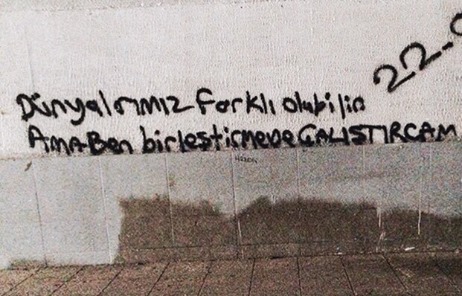 22.
Dünyalarımız Farklı olabilir
AMA Ben birleştirmeye ÇALIŞTIRCAM